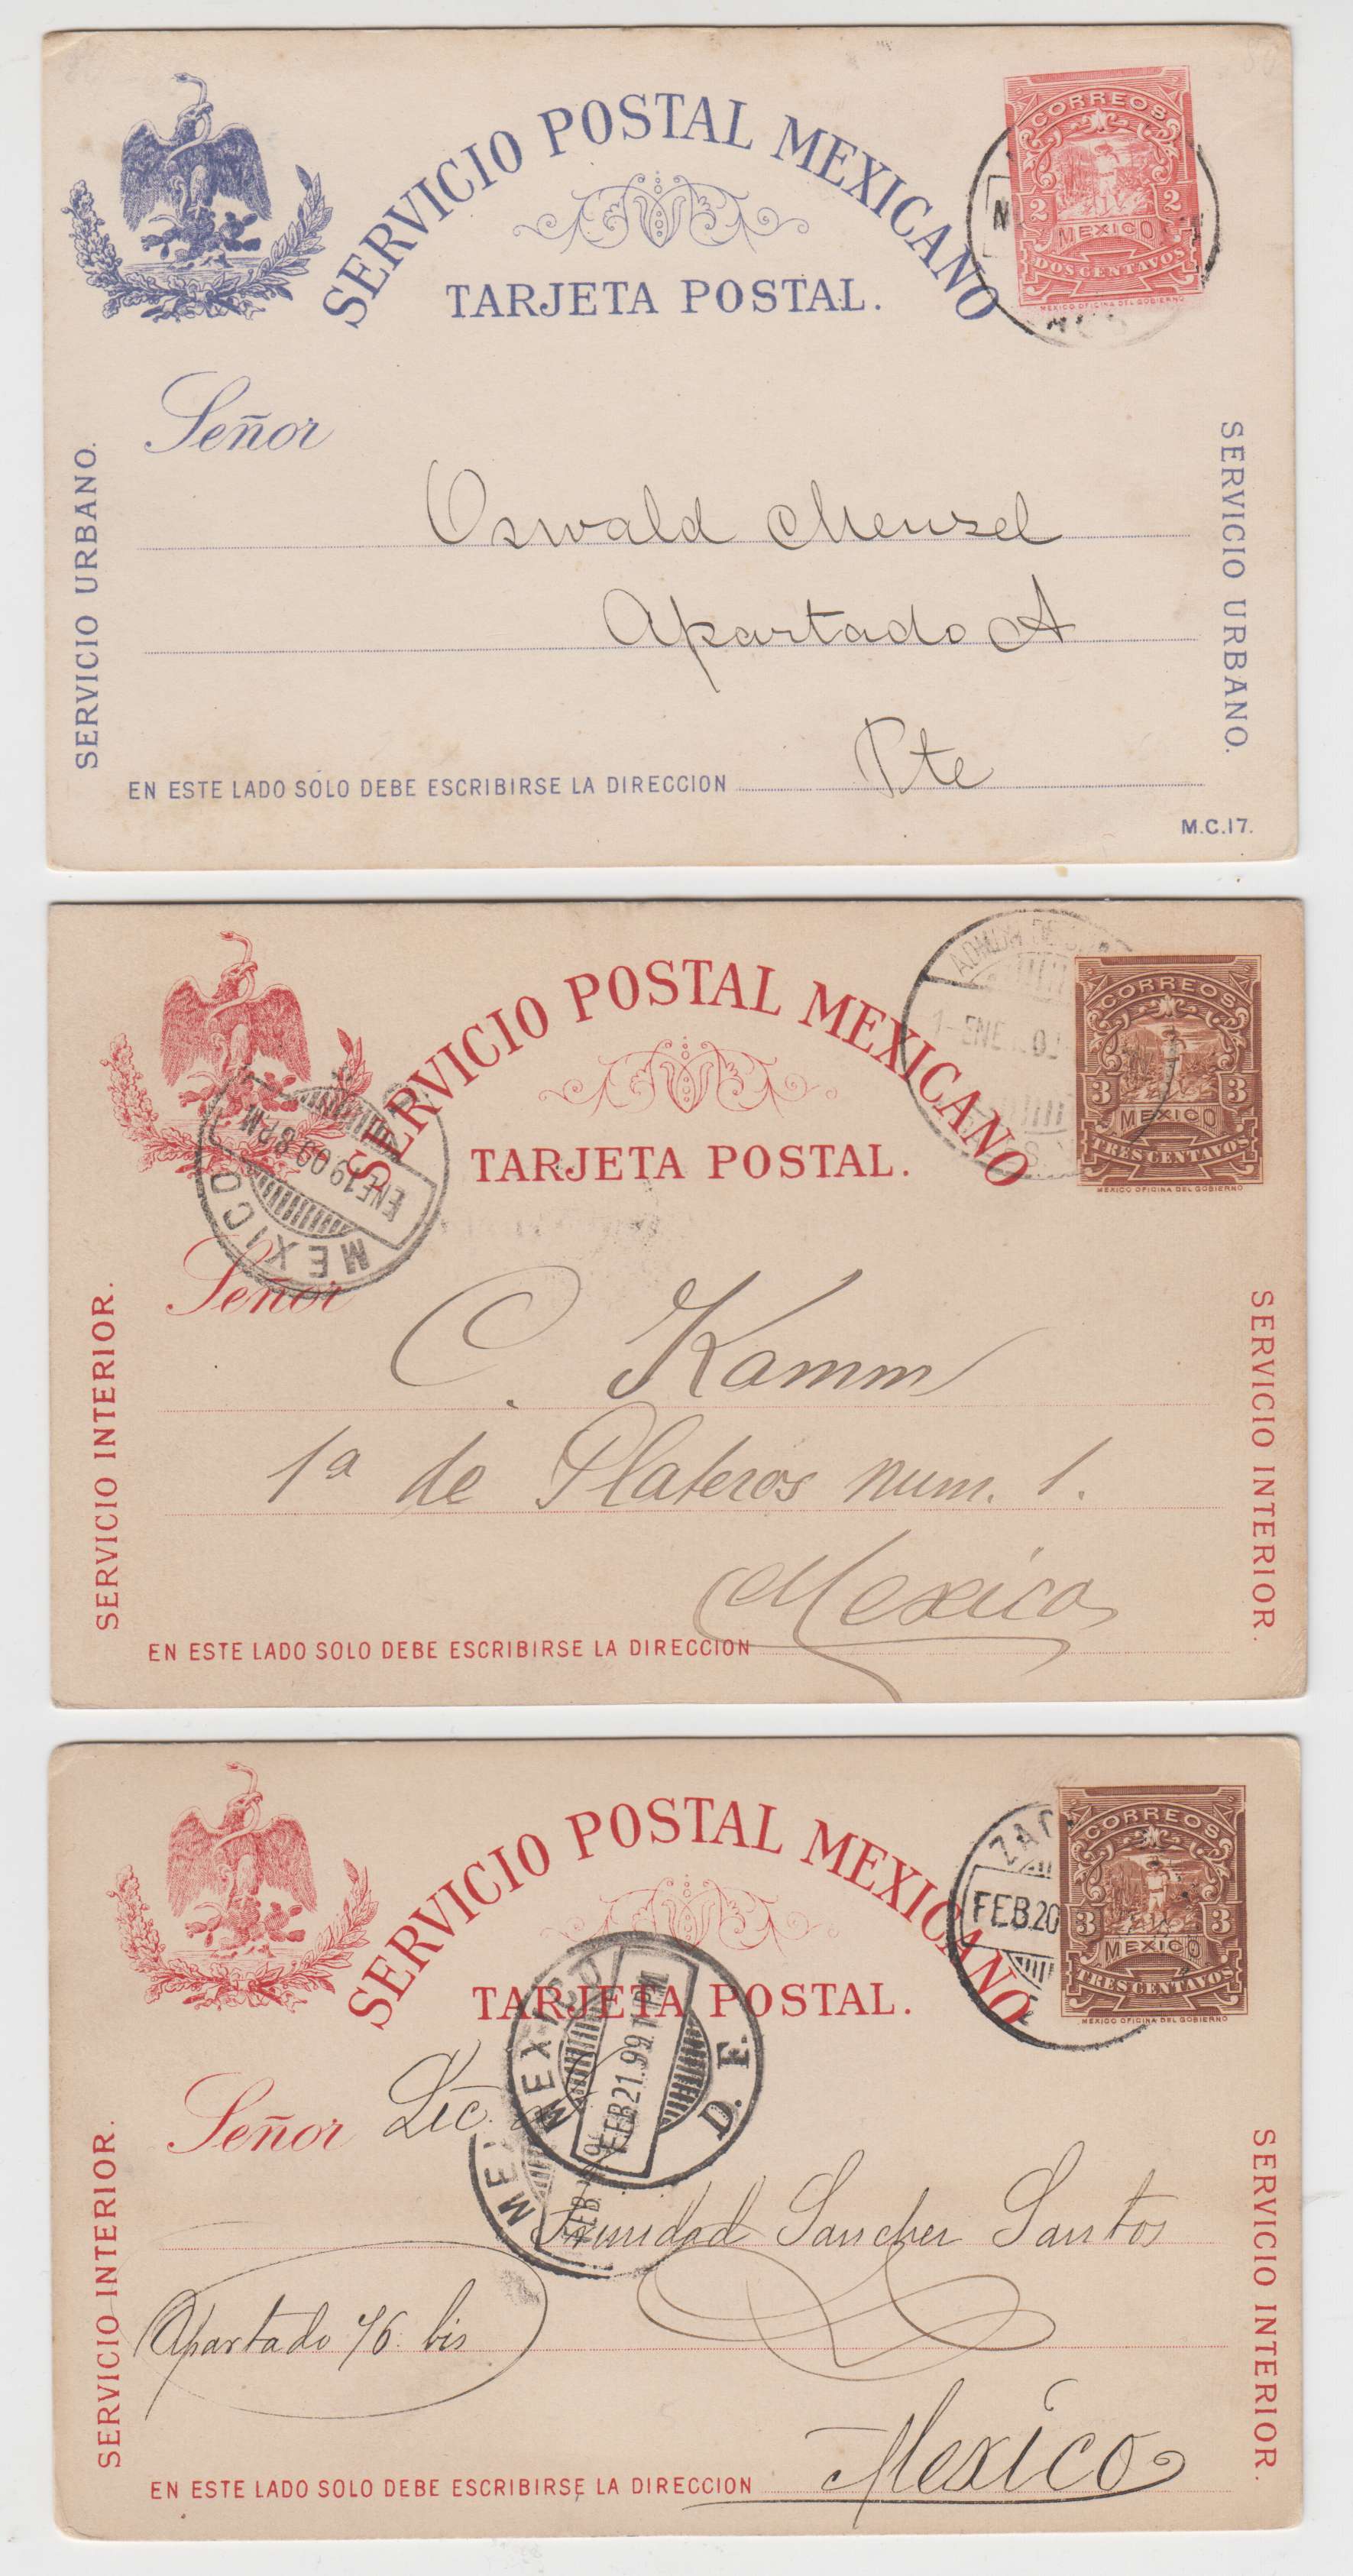 SERVICIO POSTAL MEXICANO
TARJETA POSTAL.
CORREOS
2 2
MEXICO
DOS CENTAVOS
MEXICO OFICINA DEL GOBIERNO
Señor
Oswald Menzel
Apartado A
Pte
SERVICIO URBANO.
SERVICIO URBANO.
EN ESTE LADO SOLO DEBE ESCRIBIRSE LA DIRECCION
M.C.17.
SERVICIO POSTAL MEXICANO
TARJETA POSTAL.
CORREOS
3 3
MEXICO
TRES CENTAVOS
MEXICO OFICINA DEL GOBIERNO
MEXICO
Señor
C. Kamm
1ª de Plateros num. 1.
Mexico
SERVICIO INTERIOR.
SERVICIO INTERIOR.
EN ESTE LADO SOLO DEBE ESCRIBIRSE LA DIRECCION
SERVICIO POSTAL MEXICANO
TARJETA POSTAL.
CORREOS
3 3
MEXICO
TRES CENTAVOS
MEXICO OFICINA DEL GOBIERNO
FEB.20
MEXICO
FEB.21.99.1 PM
D. F.
Señor Lic.
Trinidad Sanchez Santos
Apartado 76. bis
Mexico
SERVICIO INTERIOR.
SERVICIO INTERIOR.
EN ESTE LADO SOLO DEBE ESCRIBIRSE LA DIRECCION